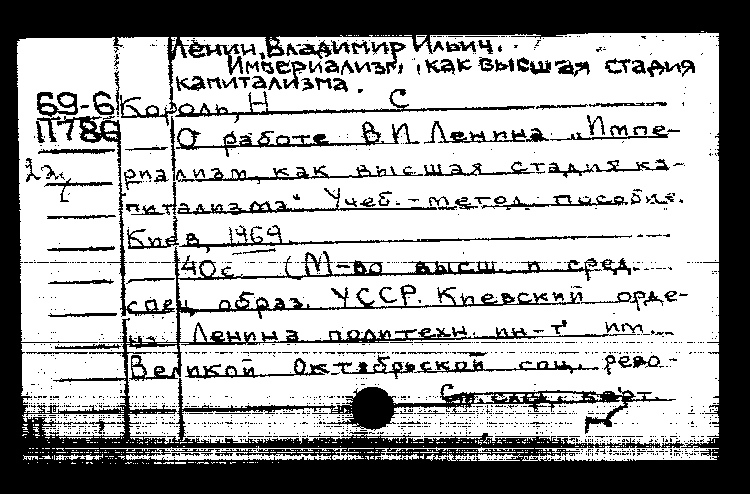 Ленин, Владимир Ильич.
Империализм, как высшая стадия
капитализма.
69-6 Король, Н С
П786 О работе В.И. Ленина „Импе-
риализм, как высшая стадия ка-
питализма" Учеб.-метод. пособие.
Киев, 1969.
40с. (М-во высш. и сред.
спец. образ. УССР. Киевский орде-
на Ленина политехн. ин-т им.
Великой Октябрьской соц. рево-
См. след. карт.